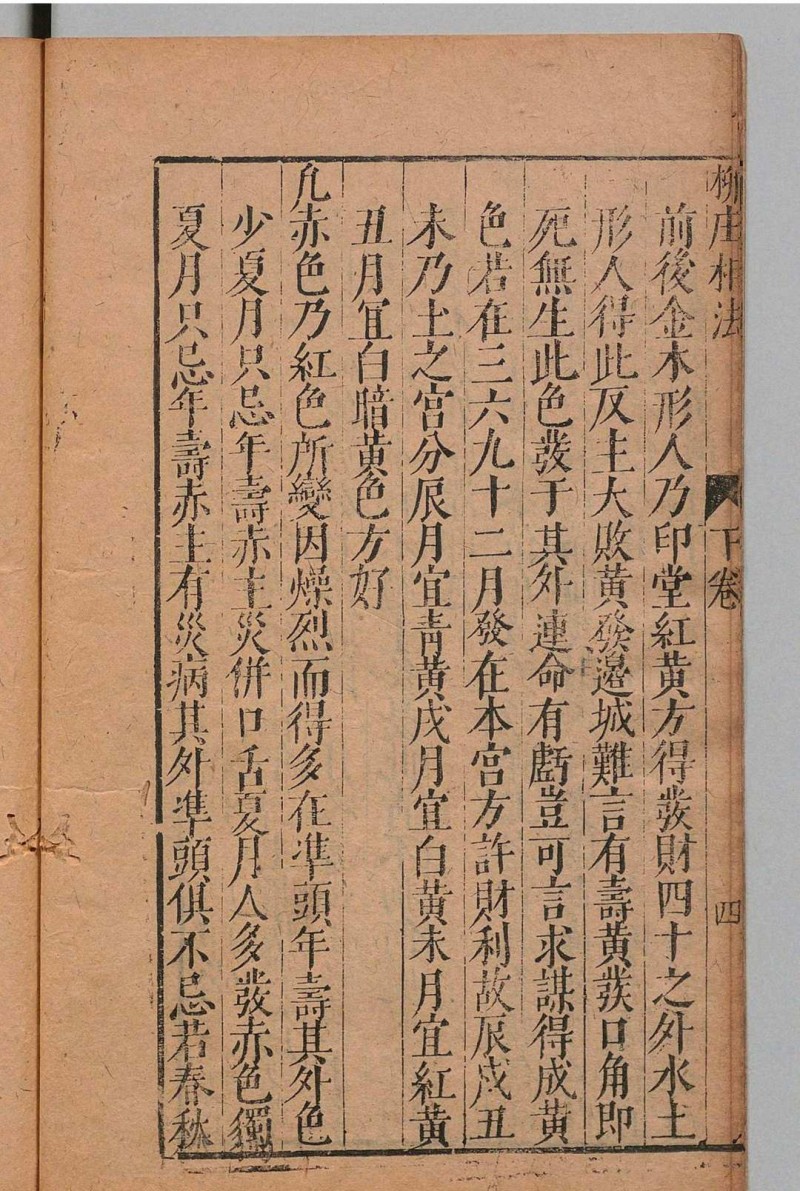 柳庄相法 下卷 四
前後金木形人乃印堂紅黃方得發財四十之外水土
形人得此反主大敗黃發邊城難言有壽黃發口角即
死無生此色發于其外連命有虧豈可言求謀得成黃
色若在三六九十二月發在本宮方許財利故辰戌丑
未乃土之宮分辰月宜青黃戌月宜白黃未月宜紅黃
丑月宜白暗黃色方好
凢赤色乃紅色所變因燥烈而得多在準頭年壽其外色
少夏月只忌年壽赤主災併口舌夏月人多發赤色獨
夏月只忌年壽赤主有災病其外準頭俱不忌若春秋